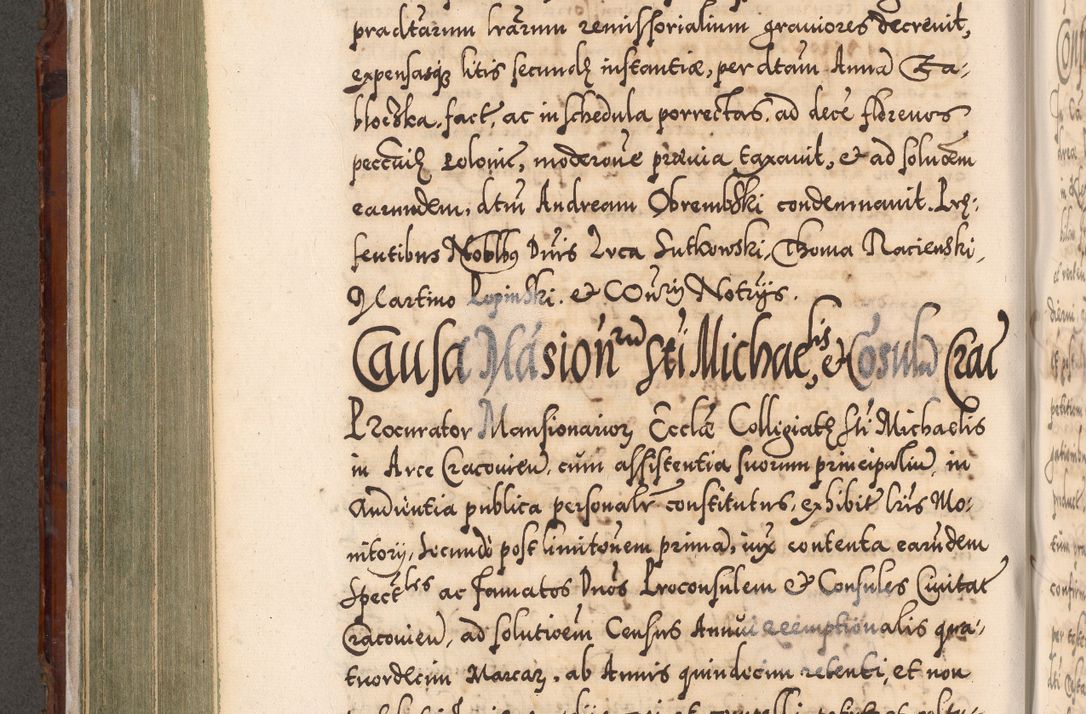 pradtarum lrarum remissorialium grauiores decreuit,
expensasq litis secundæ instantiæ, per dtam Annã Za-
bloczka, fact, ac in schedula porrectas, ad decē florenos
pecciæ Polonic, moderoue præuia taxauit, et ad solucem
earundem, dtm Andream Obrembski condemnauit. Præ-
sentibus Nobllbq Dnis Luca Sutkowski, Thoma Racienski,
Martino Lopinski. et Notrijs.
Causa Mãsion rũ Sti Michaelis, et Cosulũ Crac
Procurator Mansionarior Ecclæ Collegiatæ Sti Michaelis
in Arce Cracouien, cum assistentia suorum principaliũ, in
Audientia publica personalr constitutus, exhibit lris Mo-
nitorij, secundo post limitouem primã, iux contenta earũdem
Spectles ac famatos Dnos Proconsulem et Consules Ciuitat
Cracouien, ad solutioem Census Annui reemptionalis qua-
tuordecim Marcar, ab Annis quindecim retenti, et non